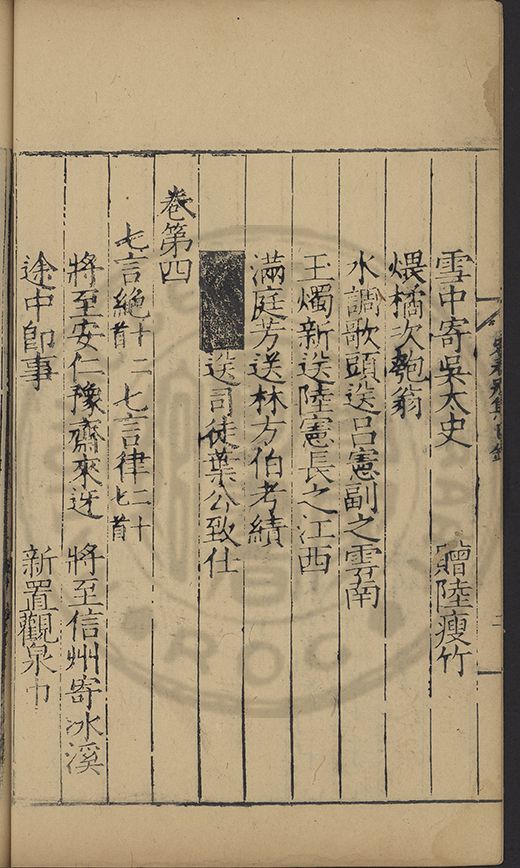 雪中寄吳太史　贈陸瘦竹
煨橘次匏翁
水調歌頭送呂憲副之雲南
玉燭新送陸憲長之江西
滿庭芳送林方伯考績
送司徒葉公致仕
卷第四
七言絶十二首　七言律二十七首
將至安仁豫齋來迓　將至信州寄冰溪
途中卽事　新置觀泉巾